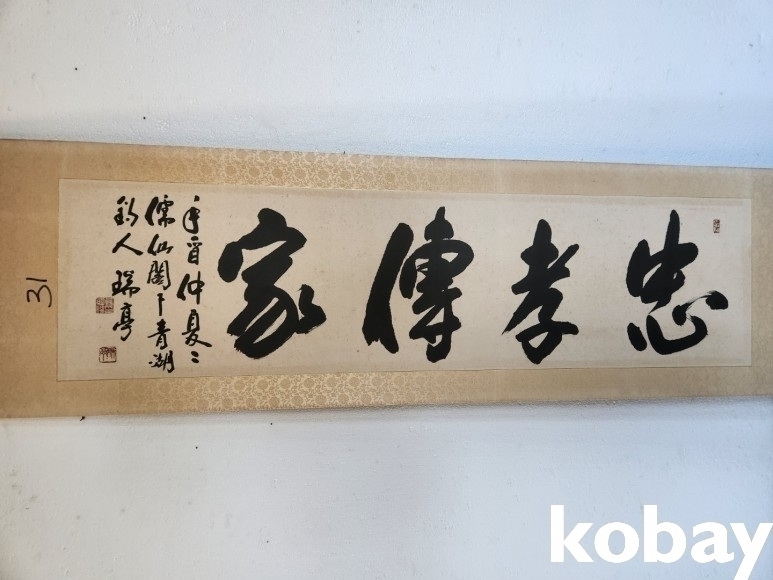 忠孝傳家
辛酉仲夏二
儒仙閣下青湖
釣人 瑞亭
31
kobay